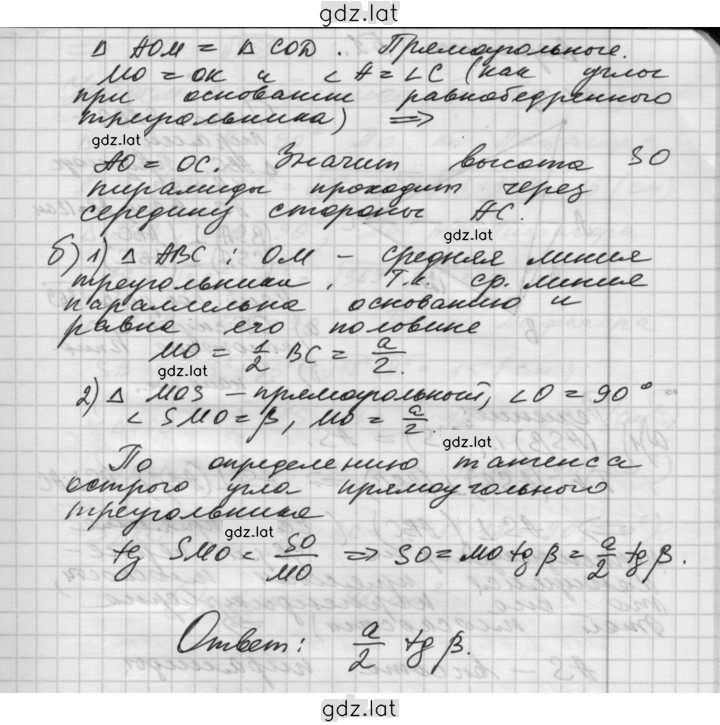 gdz.lat
Δ AOM = Δ COD. Прямоугольные.
MO = OK и ∠A = ∠C (как углы
при основании равнобедренного
треугольника) ⟹
gdz.lat
AO = OC. Значит высота SO
пирамиды проходит через
середину стороны AC.
gdz.lat
б) 1) Δ ABC: OM – средняя линия
треугольника. Т.к. ср. линия
параллельна основанию и
равна его половине
MO = 1/2 BC = a/2.
gdz.lat
2) Δ MOS – прямоугольный, ∠O = 90°
∠ SMO = β, MO = a/2.
gdz.lat
По определению тангенса
острого угла прямоугольного
треугольника
gdz.lat
tg SMO = SO/MO ⟹ SO = MO tg β = a/2 tg β.
Ответ: a/2 tg β.
gdz.lat